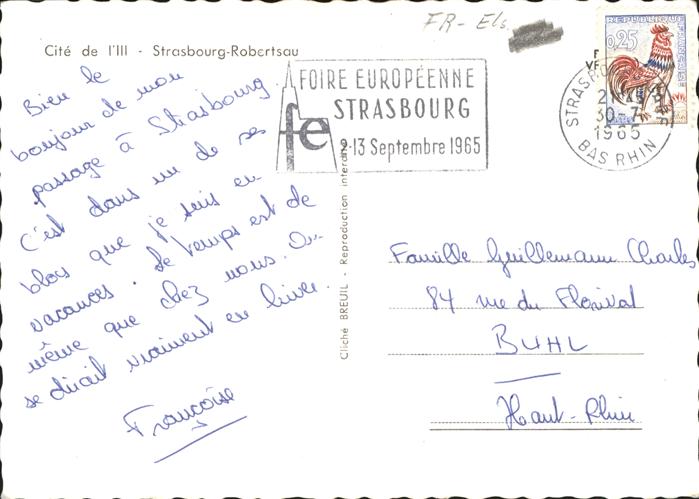 FR-Els
Cité de l'Ill - Strasbourg-Robertsau
Bien le
bonjour de mon
passage à Strasbourg.
C'est dans un de ses
blocs que je suis en
vacances. Le temps est de
même que chez nous. On
se dirait vraiment en hiver.
Françoise
FOIRE EUROPÉENNE
STRASBOURG
fe
2-13 Septembre 1965
REPUBLIQUE FRANÇAISE
0,25
STRASBOURG
30-7
1965
BAS RHIN
Cliché BREUIL - Reproduction interdite
Famille Guillemann Charles
84 rue du Florival
BUHL
Haut-Rhin